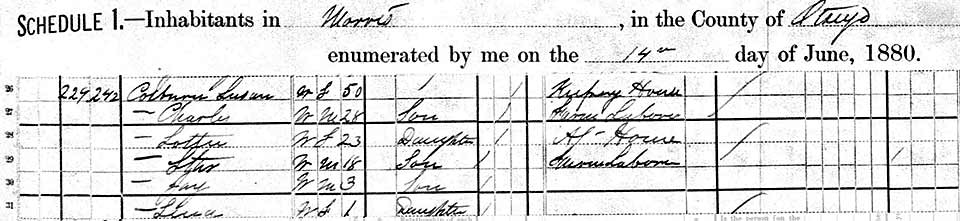 SCHEDULE 1.—Inhabitants in Morris, in the County of Otsego
enumerated by me on the 14th day of June, 1880.
26 229 242 Colburn Susan W F 50 / Keeping House /
27 — Charles W M 28 Son / Farm Laborer
28 — W F 23 Daughter / At Home /
29 — W M 18 Son / Farm Laborer /
30 — W M 3 Son /
31 — W F 1 Daughter / /